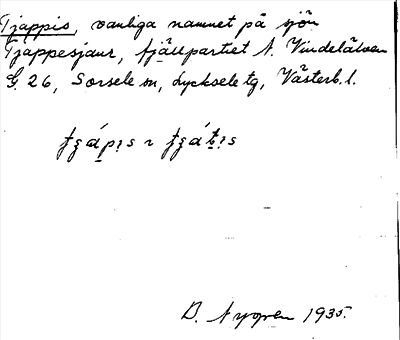 Tjappis, vanliga namnet på sjön
Tjappesjaur, fjällpartiet N. Vindelälven
G. 26, Sorsele sn, Lycksele tg, Västerb. l.
D. Nygren 1935.